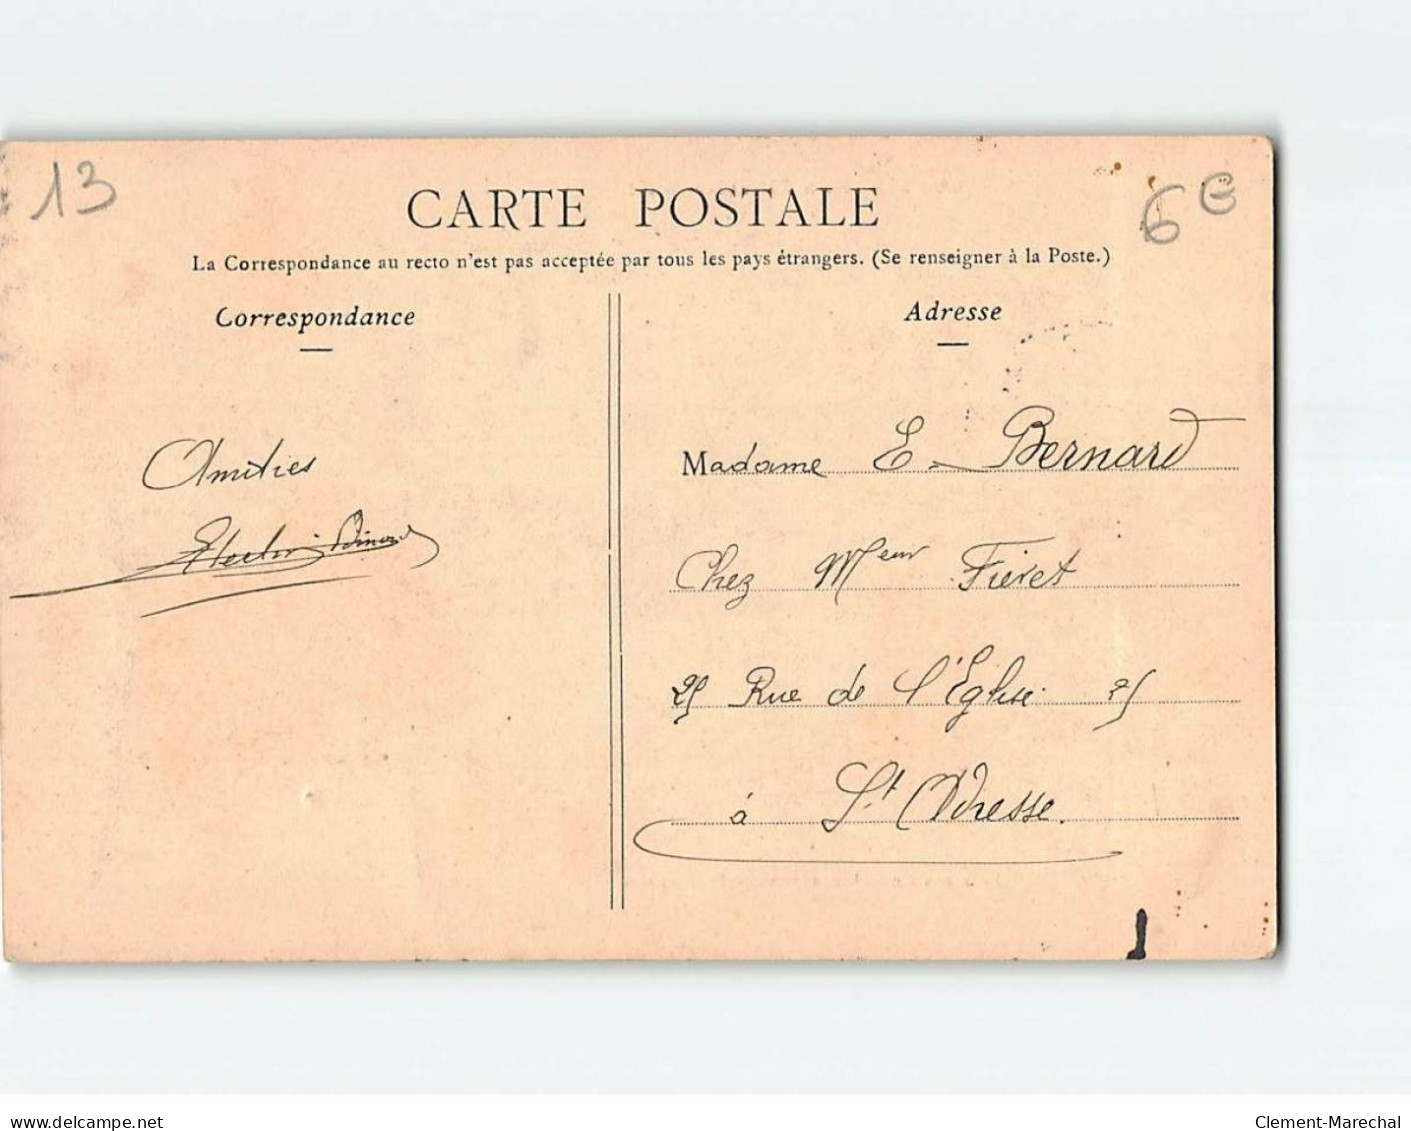 13
6€
CARTE POSTALE
La Correspondance au recto n'est pas acceptée par tous les pays étrangers. (Se renseigner à la Poste.)
Correspondance
Adresse
Amitiés
Madame E. Bernard
Chez Meur Fieret
25 Rue de l'Eglise 25
à St. Adresse.
www.delcampe.net
Clement-Marechal